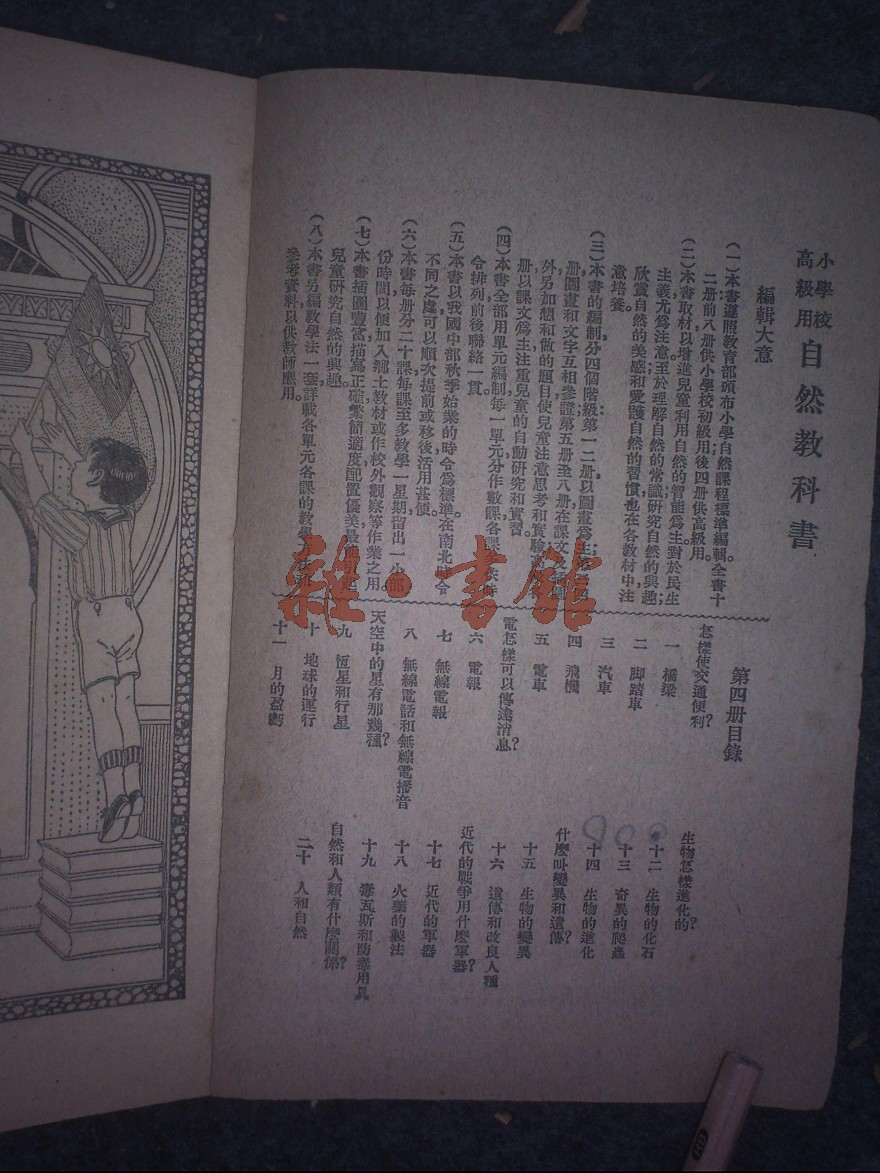 小學校
高級用
自然教科書
編輯大意
(一)本書遵照教育部頒布小學自然課程標準編輯;全書十
二册前八册供小學校初級用後四册供高級用。
(二)本書取材以增進兒童利用自然的智能爲主對於民生
主義尤爲注意至於理解自然的常識研究自然的興趣
欣賞自然的美感和愛護自然的習慣也在各教材中注
意培養。
(三)本書的編制分四個階級:第一二册以圖畫爲主
册圖畫和文字互相參證第五册至八册在課文
外另加想和做的題目使兒童注意思考和實驗
册以課文爲主注重兒童的自動研究和實習。
(四)本書全部用單元編制每一單元分作數課各課
令排列前後聯絡一貫。
(五)本書以我國中部秋季始業的時令爲標準在南北
不同之處可以順次提前或移後活用甚便。
(六)本書每册分二十課每課至多教學一星期留出一小部
份時間以便加入鄉土教材或作校外觀察等作業之用。
(七)本書插圖豐富描寫正確繁簡適度配置優美最能引起
兒童研究自然的興趣。
(八)本書另編教學法一套詳載各單元各課的教學
參考資料以供教師應用。
第四册目錄
怎樣使交通便利?
一 橋梁
二 脚踏車
三 汽車
四 飛機
五 電車
電怎樣可以傳遠消息?
六 電報
七 無線電報
八 無線電話和無線電播音
天空中的星有那幾種?
九 恆星和行星
十 地球的運行
十一 月的盈虧
生物怎樣進化的?
十二 生物的化石
十三 奇異的爬蟲
十四 生物的進化
什麽叫變異和遺傳?
十五 生物的變異
十六 遺傳和改良人種
近代的戰爭用什麽軍器?
十七 近代的軍器
十八 火藥的製法
十九 毒瓦斯和防毒用具
自然和人類有什麽關係?
二十 人和自然
雜·書館
HB